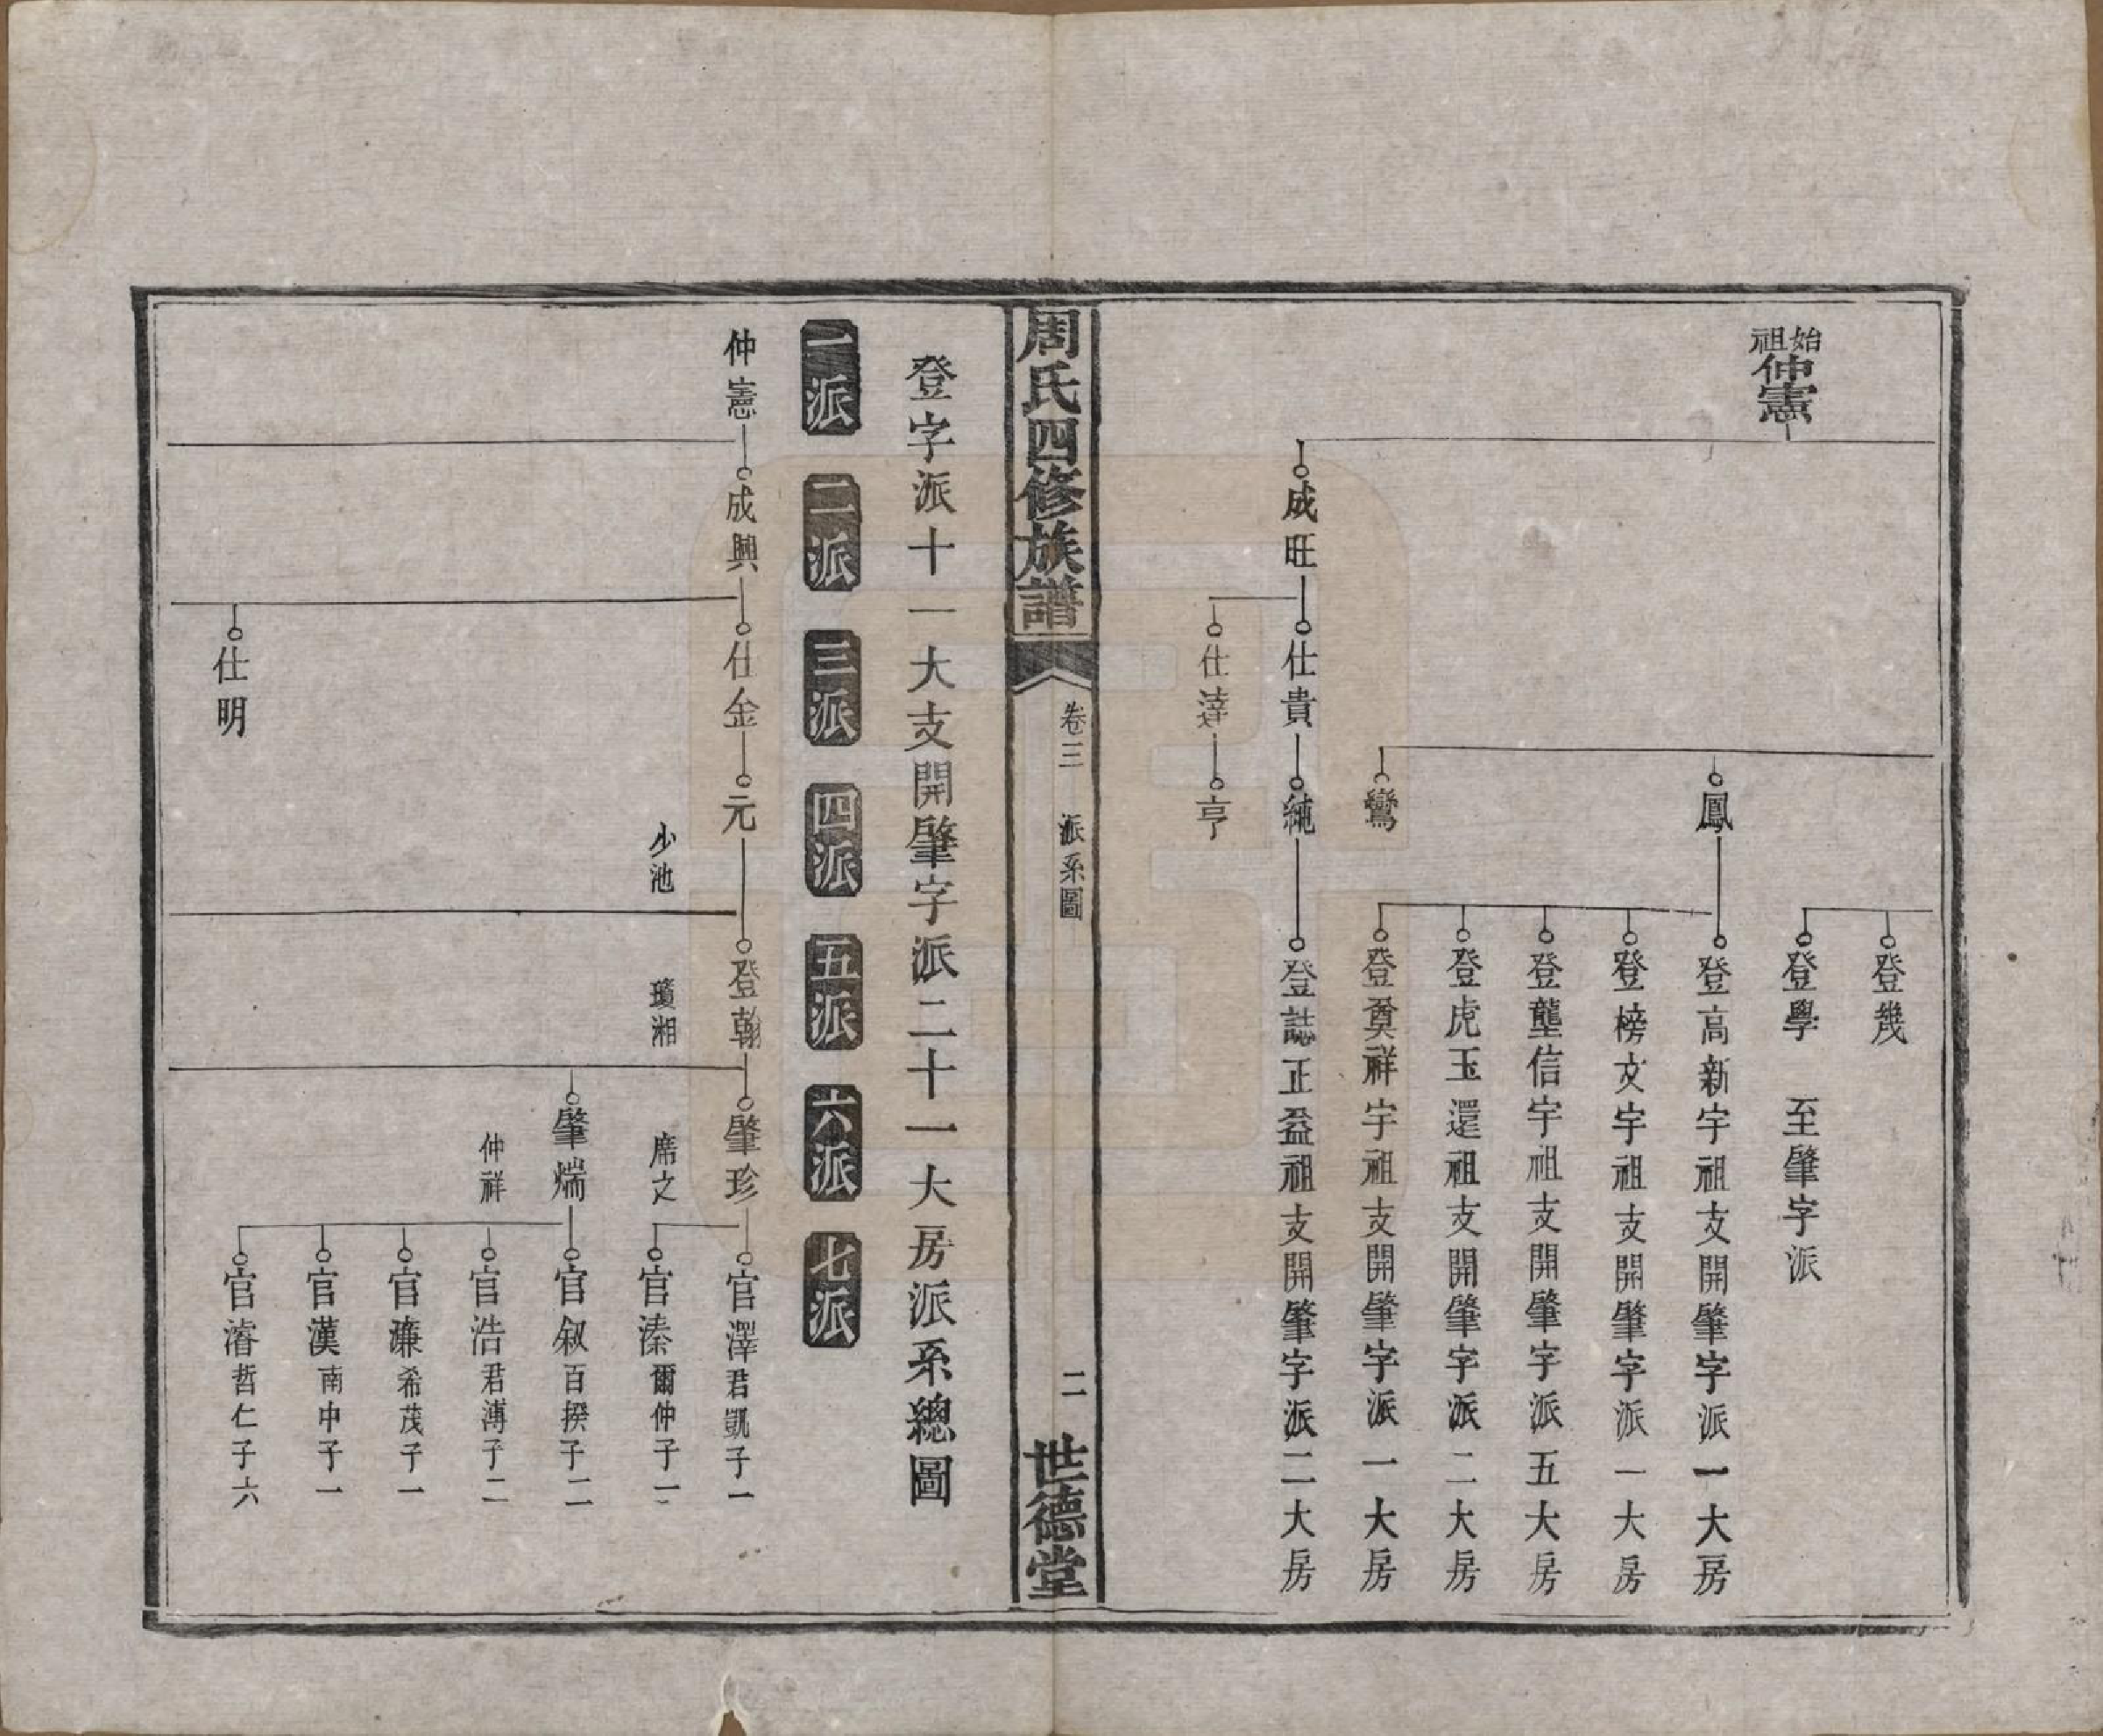 始祖仲憲
登幾
登學　至肇字派
鳳
登高新宇祖支開肇字派一大房
登榜文宇祖支開肇字派一大房
登龍信宇祖支開肇字派五大房
登虎玉還祖支開肇字派二大房
鸞
登奠祥宇祖支開肇字派一大房
成旺
仕貴
純
登誌正益祖支開肇字派二大房
仕達
亨
周氏四修族譜
卷三　派系圖
二
世德堂
登字派十一大支開肇字派二十一大房派系總圖
一派　二派　三派　四派　五派　六派　七派
仲憲
成興
仕金
元
登翰
肇珍
官澤君凱子一
少池
瓊湘
席之
官溱爾仲子一
肇煓
官叙百揆子二
仲祥
官浩君溥子二
官濂希茂子一
官漢南中子一
仕明
官濬哲仁子六